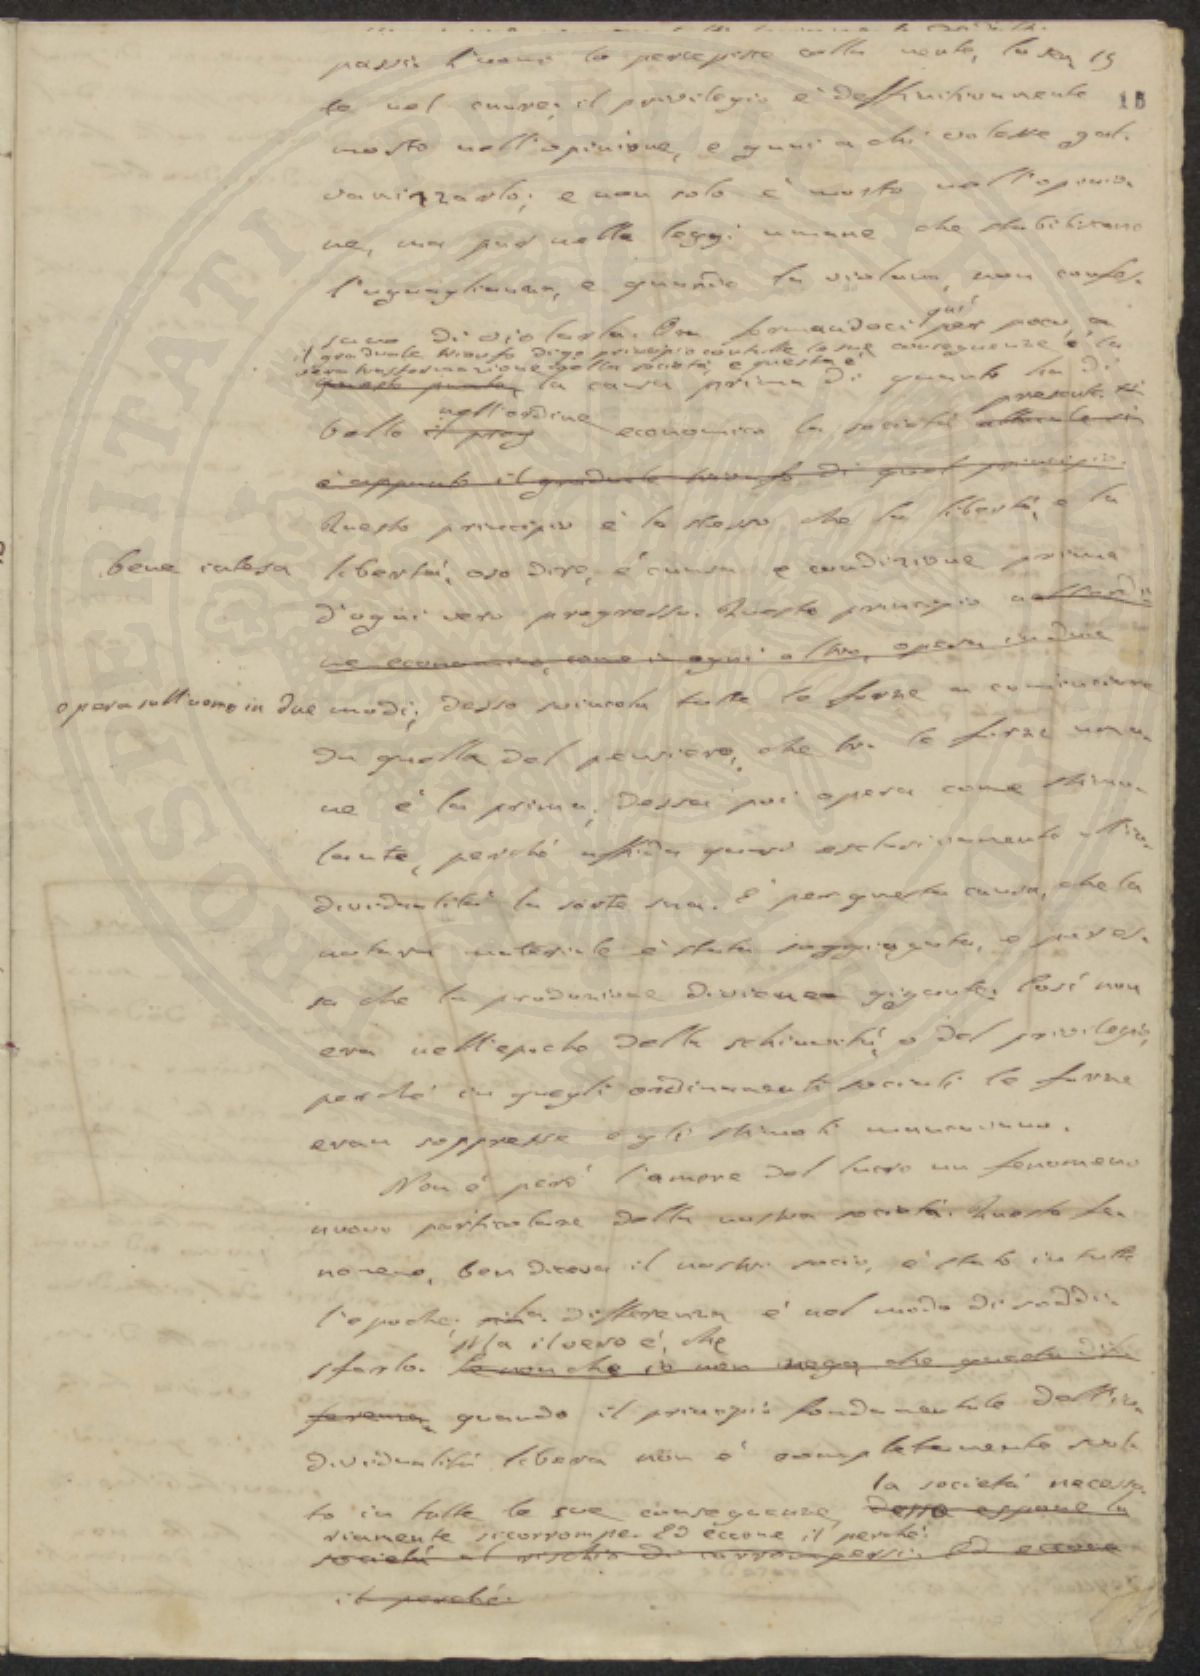 passi. L'uomo lo percepisce colla mente, lo sen 15
te nel cuore; il privilegio è deffinitivamente 15
morto nell'opinione, e guai a chi volesse gal-
vanizzarlo; e non solo è morto nell'opinio-
ne, ma pur nelle leggi umane che stabiliscono
l'uguaglianza, e quando la violano, non confes-
sano di violarla. Ora fermandoci quì per poco, a
il graduale trionfo di qo principio con tutte le sue conseguenze è la
vera trasformazione della società, e questa è
questo punto, la causa prima di quanto ha di
bello il prog nell'ordine economico la società attuale si presente.
è appunto il graduale trionfo di quel principio.
Questo principio è lo stesso che la libertà, e la
bene intesa libertà, oso dire, è causa e condizione prima
d'ogni vero progresso. Questo principio nell'ordi-
ne economico, come in ogni altro, opera in due
opera sull'uomo in due modi; desso svincola tutte le forze a cominciare
da quella del pensiero, che tra le forze uma-
ne è la prima; dessa poi opera come stimo-
lante, perchè affida quasi esclusivamente all'in-
dividualità la sorte sua. È per questa causa, che la
natura materiale è stata soggiogata, e per es-
sa che la produzione diviene gigante. Così non
era nell'epoche della schiavitù, o del privilegio,
perchè in quegli ordinamenti sociali le forze
eran soppresse e gli stimoli mancavano.
Non è però l'amore del lucro un fenomeno
nuovo particolare della nostra società. Questo fe-
nomeno, ben diceva il nostro socio, è stato in tutte
l'epoche; la differenza è nel modo di soddi-
sfarlo. Ma il vero è, che
Se non che io non nego, che questa dif-
ferenza, quando il principio fondamentale dell'in-
dividualità libera non è completamente svol-
to in tutte le sue conseguenze, la società necessa-
desso espone la
riamente si corrompe. Ed eccone il perchè:
società al rischio di corrompersi. Ed eccone
il perchè.